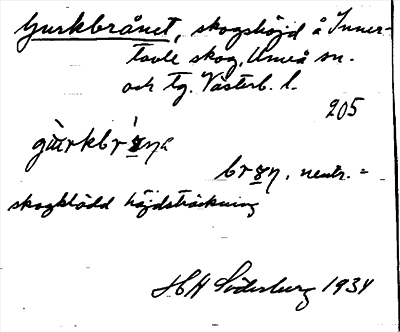 Gurkbrånet, skogshöjd å Inner-
tavle skog, Umeå sn.
och tg. Västerb. l.
205
gùrkbr's̲n̲a
brån, neutr. =
skogklädd höjdsträckning
HA Söderberg 1934